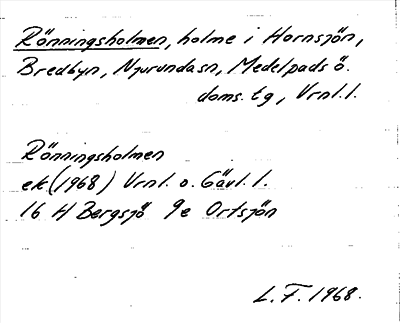 Rönningsholmen, holme i Hornsjön,
Bredbyn, Njurundasn, Medelpads ö.
doms. tg, Vrnl. l.
Rönningsholmen
ek (1968) Vrnl. o. Gävl. l.
16 H Bergsjö 9e Ortsjön
L. F. 1968.